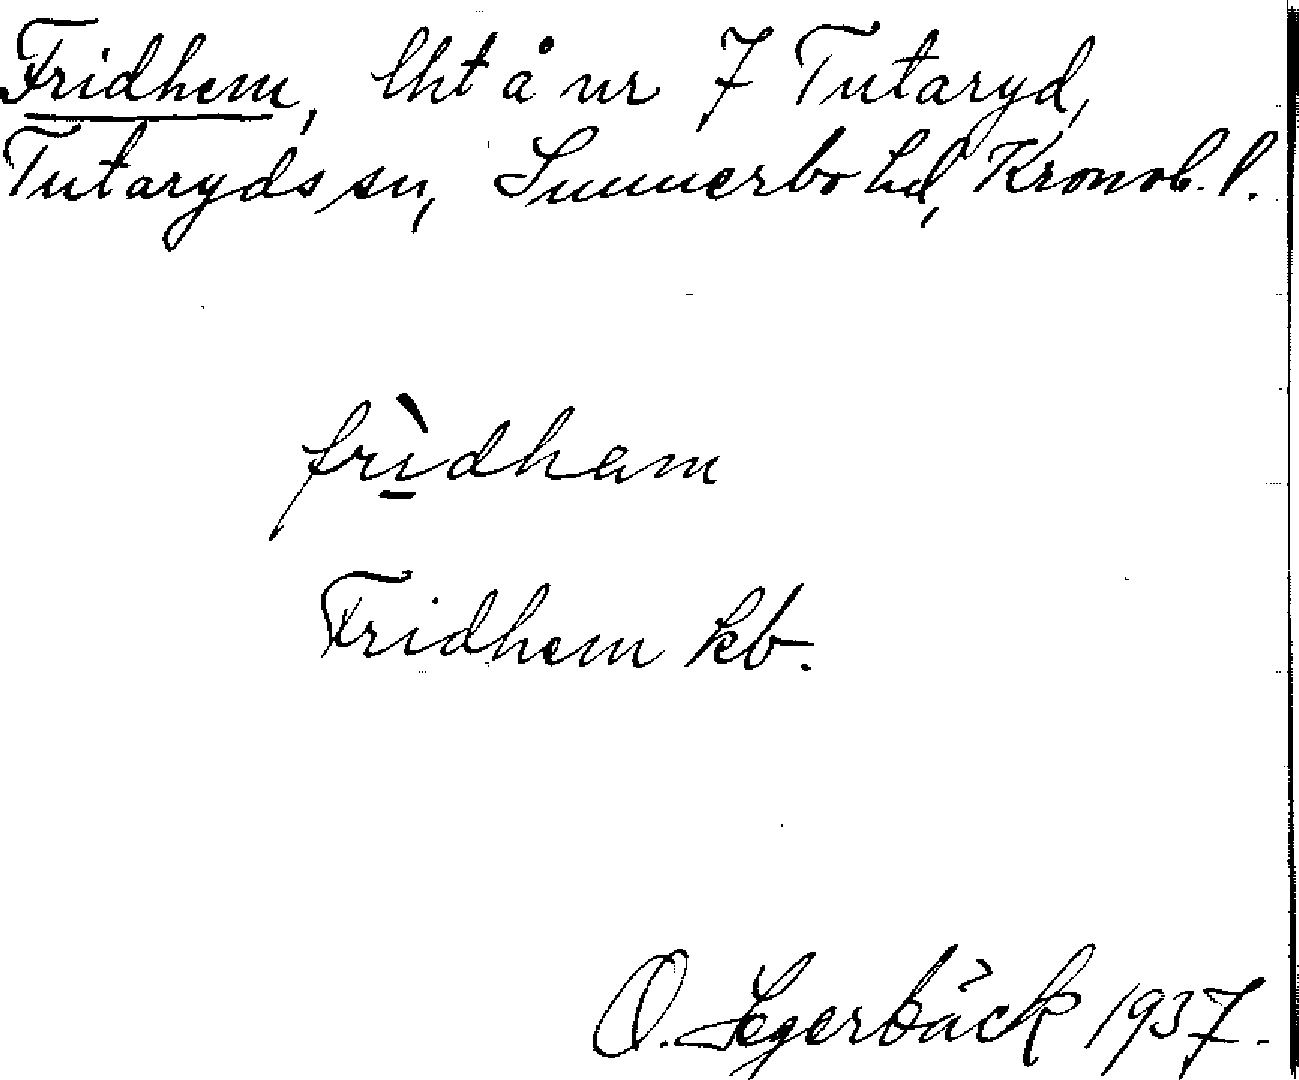 Fridhem, lht å nr 7 Tutaryd,
Tutaryds sn, Sunnerbo hd, Kronob. l.
frìdhem
Fridhem kb.
O. Segerbäck 1937.